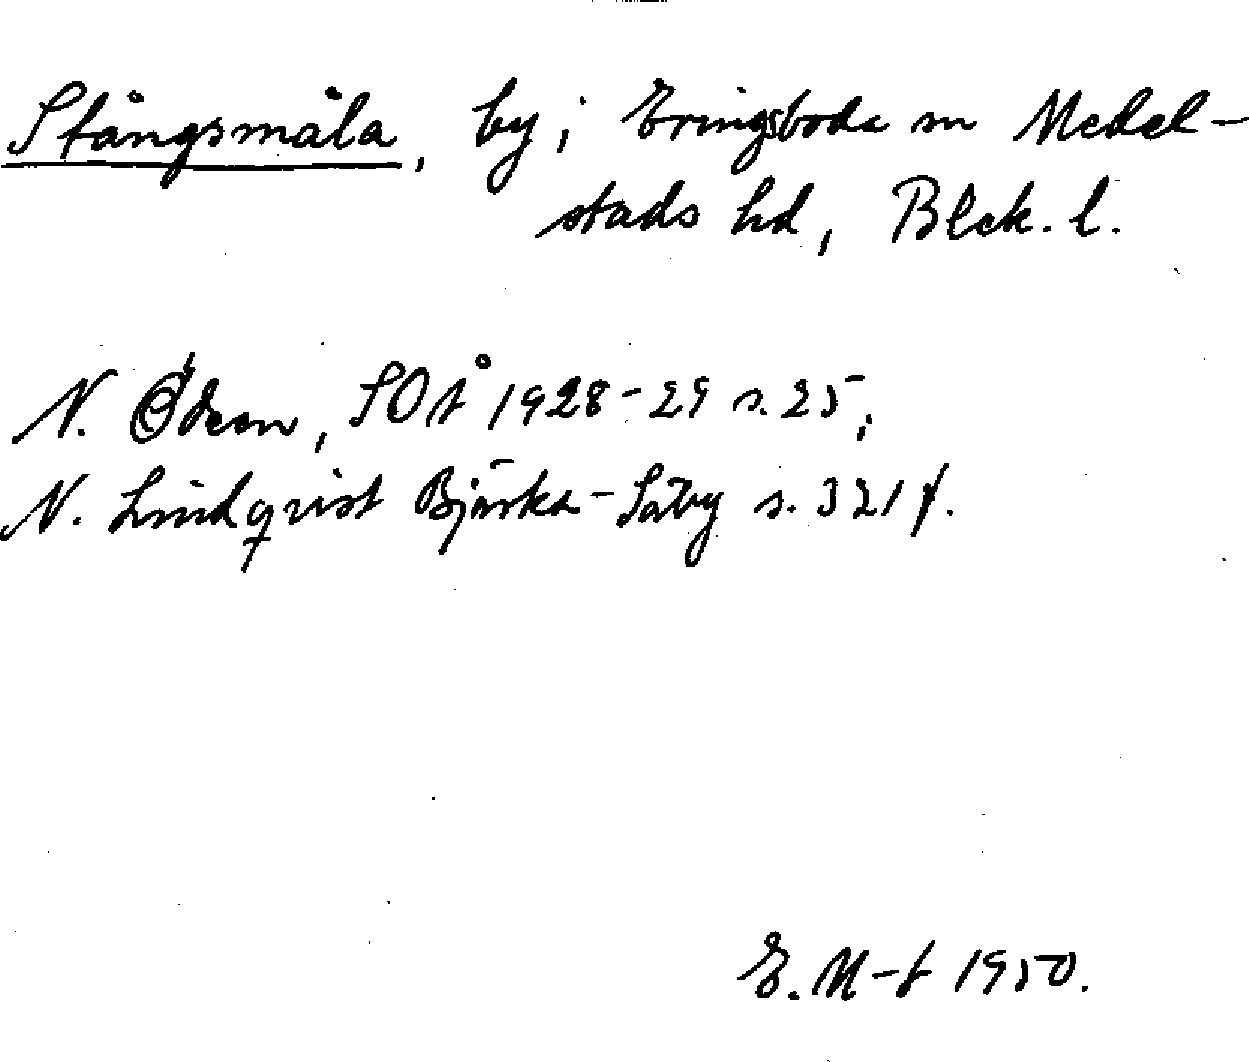 Stångsmåla, by i Eringsboda sn Medel-
stads hd, Blek. l.
N. Ödeen, SOÅ 1928-29 s. 25,
N. Lindqvist Bjärka-Säby s. 321 f.
E. M-t 1950.